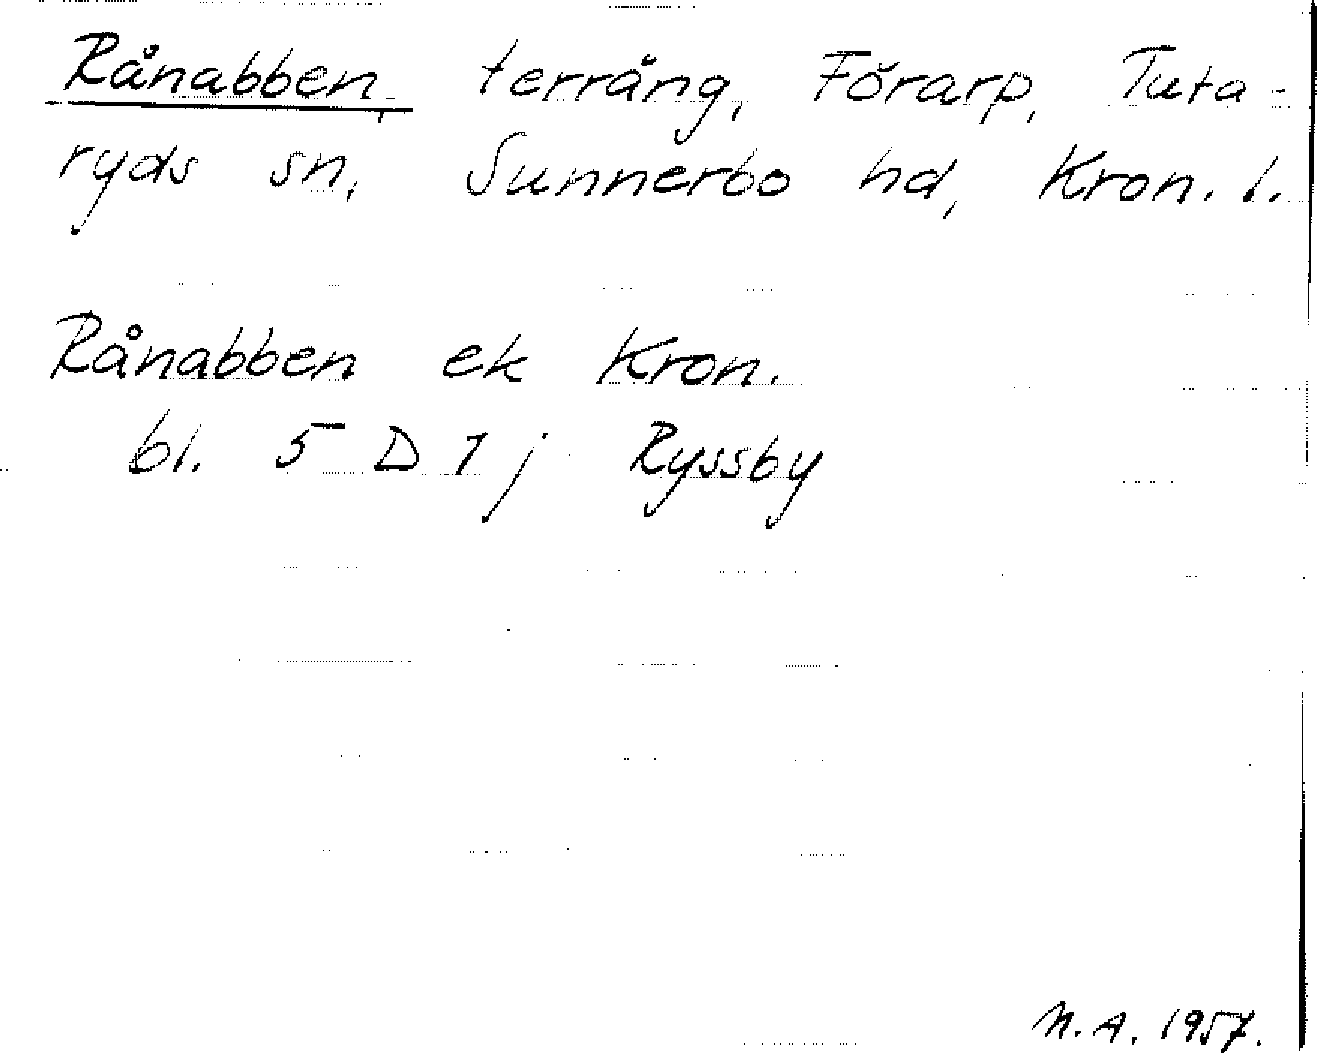 Rånabben, terräng, Förarp, Tuta-
ryds sn, Sunnerbo hd, Kron. l.
Rånabben ek Kron.
bl. 5 D 7 j Ryssby
N. A. 1957.